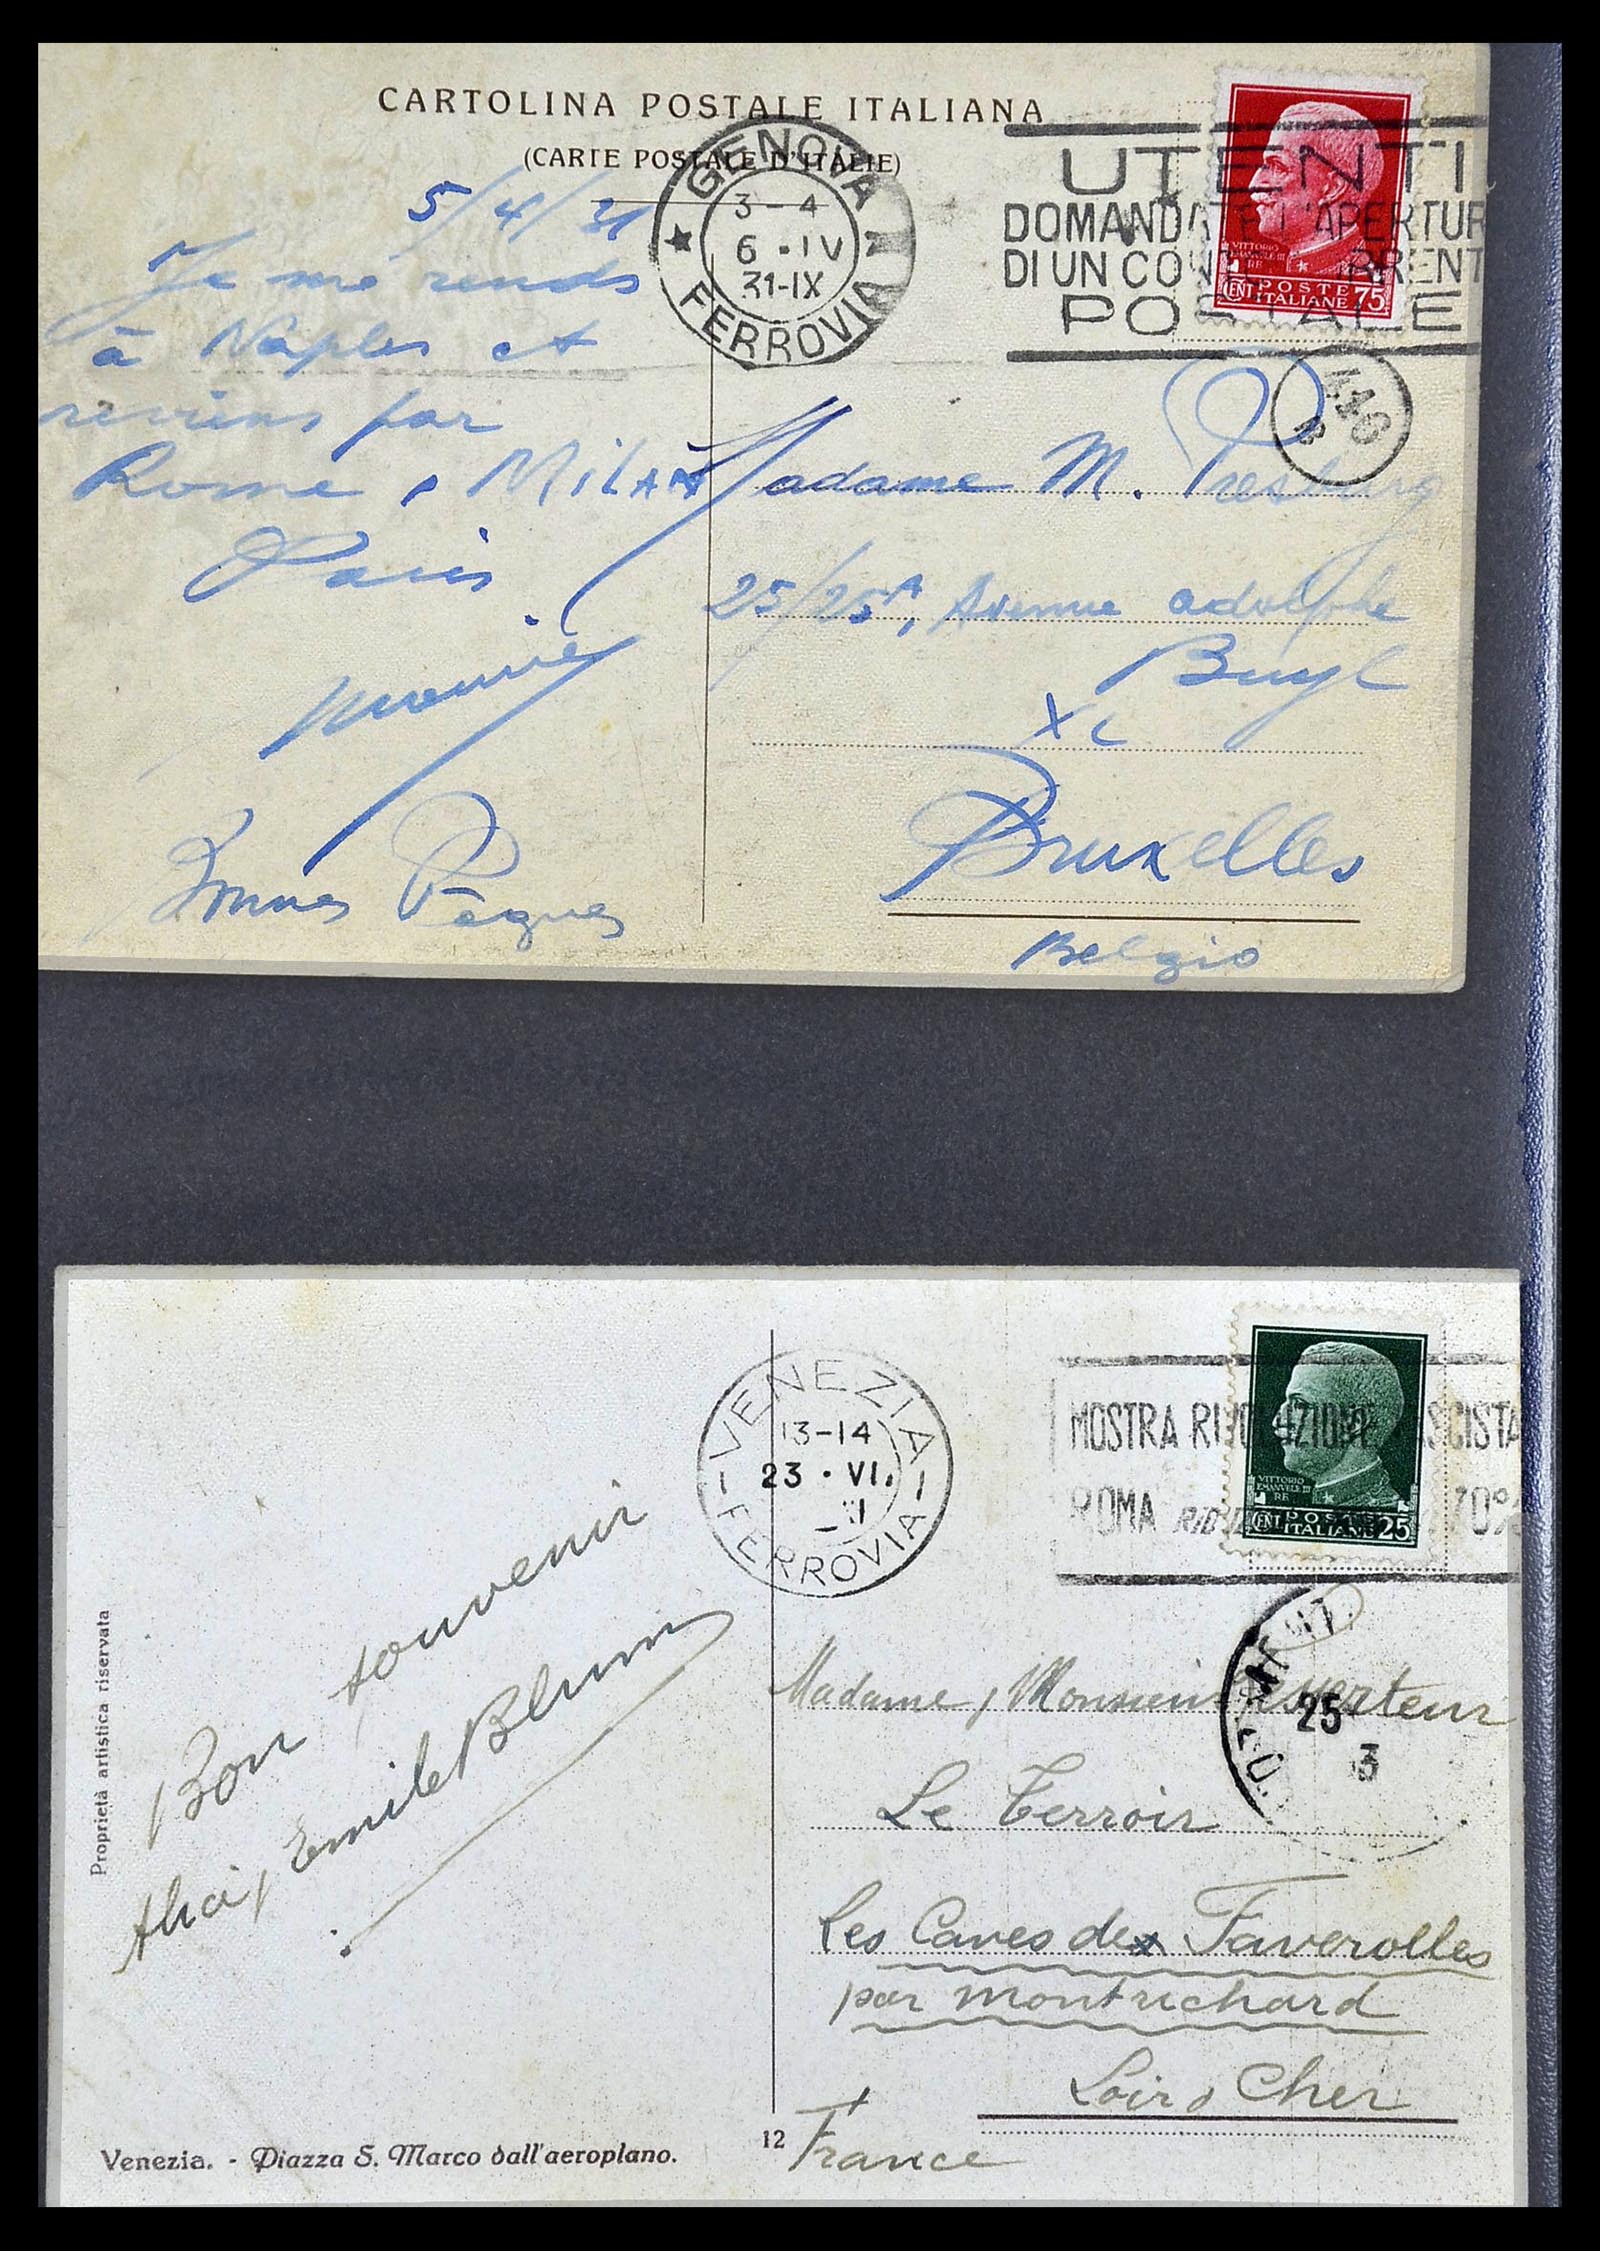 CARTOLINA POSTALE ITALIANA
(CARTE POSTALE D'ITALIE)
GENOVA
3-4
6 · IV
31-IX
FERROVIA
UTENTI
DOMANDATE L'APERTUR
DI UN CONTO CORRENT
POSTALE
VITTORIO
EMANVELE III
RE
CENT POSTE 75
ITALIANE
446
B
5/4/31
Je me rends
à Naples et
reviens par
Rome, MILAN
Paris
Bonnes Pâques
Madame M. Presburg
25/25A, Avenue adolphe
Buyl
XL
Bruxelles
Belgio
VENEZIA
13-14
23 · VI.
FERROVIA
MOSTRA RIVOLUZIONE FASCISTA
ROMA RID 70%
VITTORIO
EMANVELE III
RE
CENT POSTE 25
ITALIANE
25
3
Proprietà artistica riservata
Bon souvenir
Alice, Emile Blum
Madame, Monsieur
Le Terroir
Les Caves de Faverolles
par Montrichard
Loir & Cher
France
12
Venezia. - Piazza S. Marco dall'aeroplano.